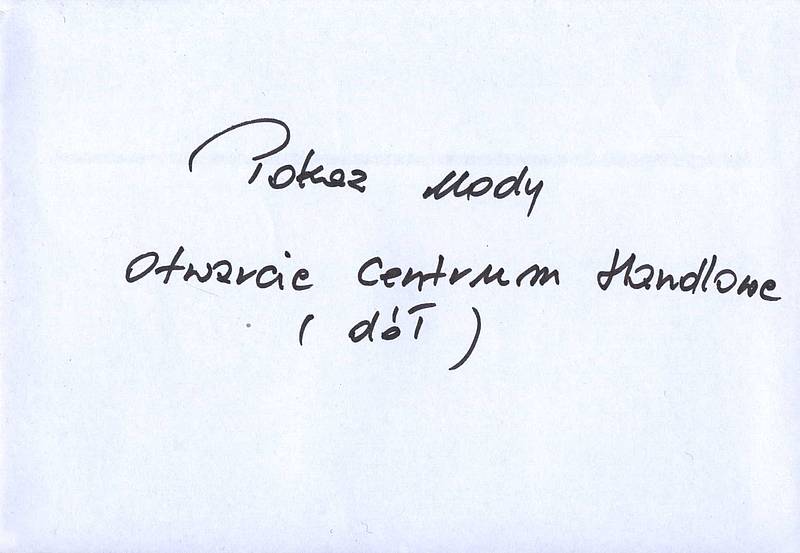 Pokaz Mody
Otwarcie Centrum Handlowe
( dół )